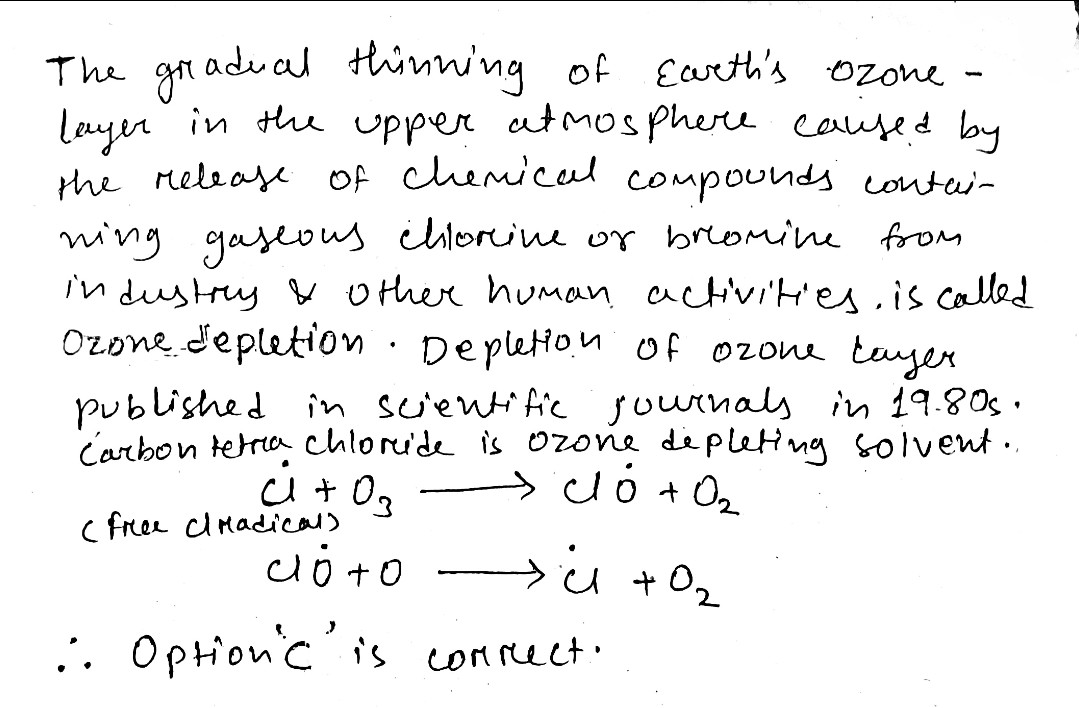 The gradual thinning of Earth's ozone -
layer in the upper atmosphere caused by
the release of chemical compounds contai-
ning gaseous chlorine or bromine from
industry & other human activities. is called
Ozone depletion. Depletion of ozone layer
published in scientific journals in 1980s.
Carbon tetra chloride is ozone depleting solvent.
Ċl + O₃ ⟶ ClȮ + O₂
(free Cl radical)
ClȮ + O ⟶ Ċl + O₂
∴ Option 'C' is correct.